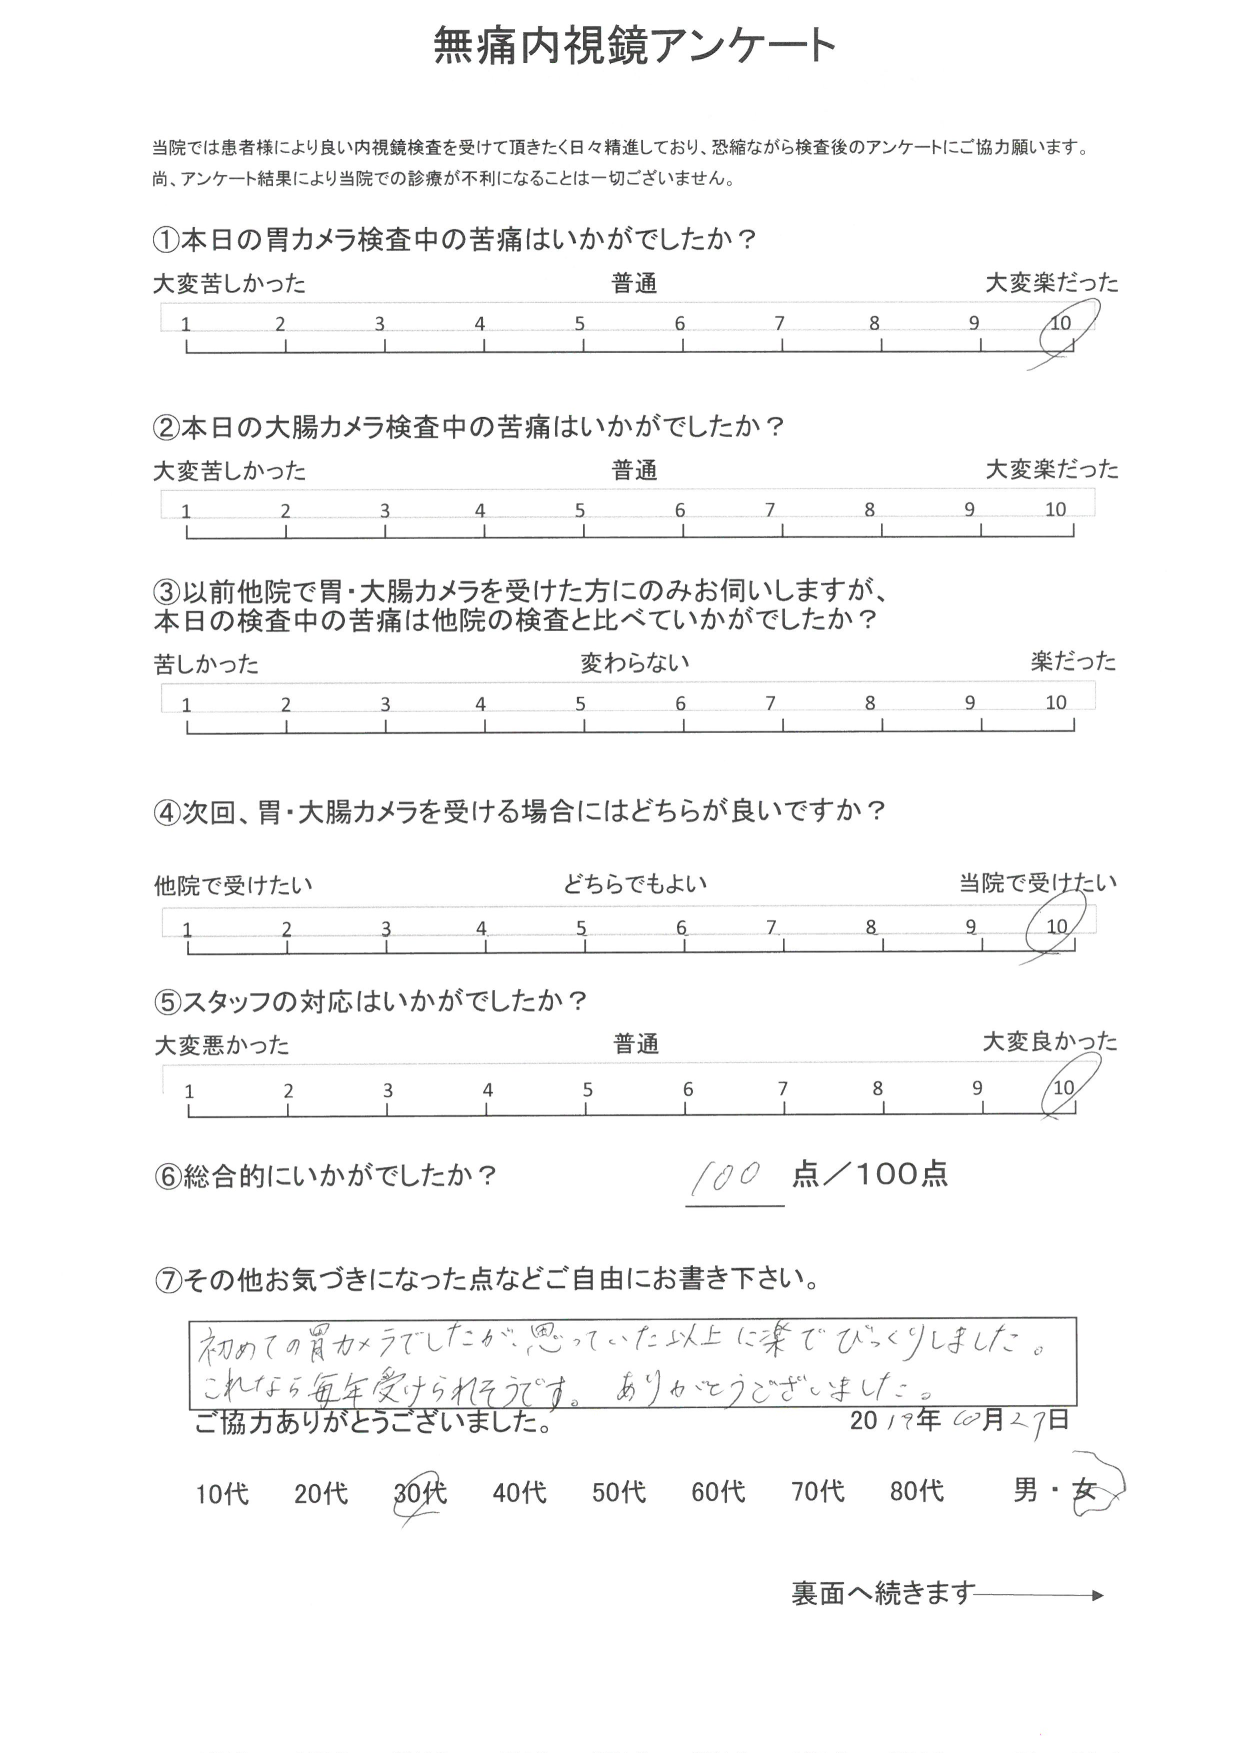 無痛内視鏡アンケート
当院では患者様により良い内視鏡検査を受けて頂きたく日々精進しており、恐縮ながら検査後のアンケートにご協力願います。
尚、アンケート結果により当院での診療が不利になることは一切ございません。
①本日の胃カメラ検査中の苦痛はいかがでしたか？
大変苦しかった 普通 大変楽だった
1 2 3 4 5 6 7 8 9 10
②本日の大腸カメラ検査中の苦痛はいかがでしたか？
大変苦しかった 普通 大変楽だった
1 2 3 4 5 6 7 8 9 10
③以前他院で胃・大腸カメラを受けた方にのみお伺いしますが、
本日の検査中の苦痛は他院の検査と比べていかがでしたか？
苦しかった 変わらない 楽だった
1 2 3 4 5 6 7 8 9 10
④次回、胃・大腸カメラを受ける場合にはどちらが良いですか？
他院で受けたい どちらでもよい 当院で受けたい
1 2 3 4 5 6 7 8 9 10
⑤スタッフの対応はいかがでしたか？
大変悪かった 普通 大変良かった
1 2 3 4 5 6 7 8 9 10
⑥総合的にいかがでしたか？ 100 点／100点
⑦その他お気づきになった点などご自由にお書き下さい。
初めての胃カメラでしたが、思っていた以上に楽でびっくりしました。
これなら毎年受けられそうです。ありがとうございました。
ご協力ありがとうございました。 2019年10月27日
10代 20代 30代 40代 50代 60代 70代 80代 男・女
裏面へ続きます